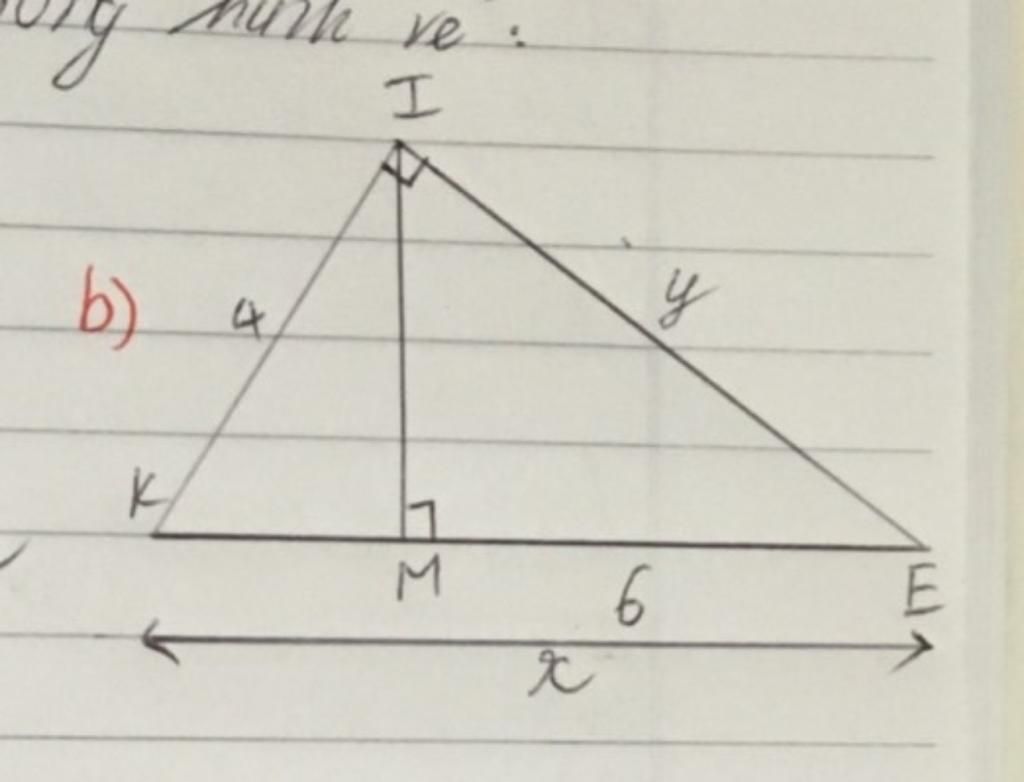 hình vẽ :
I
b)
4
y
K
M
6
E
x